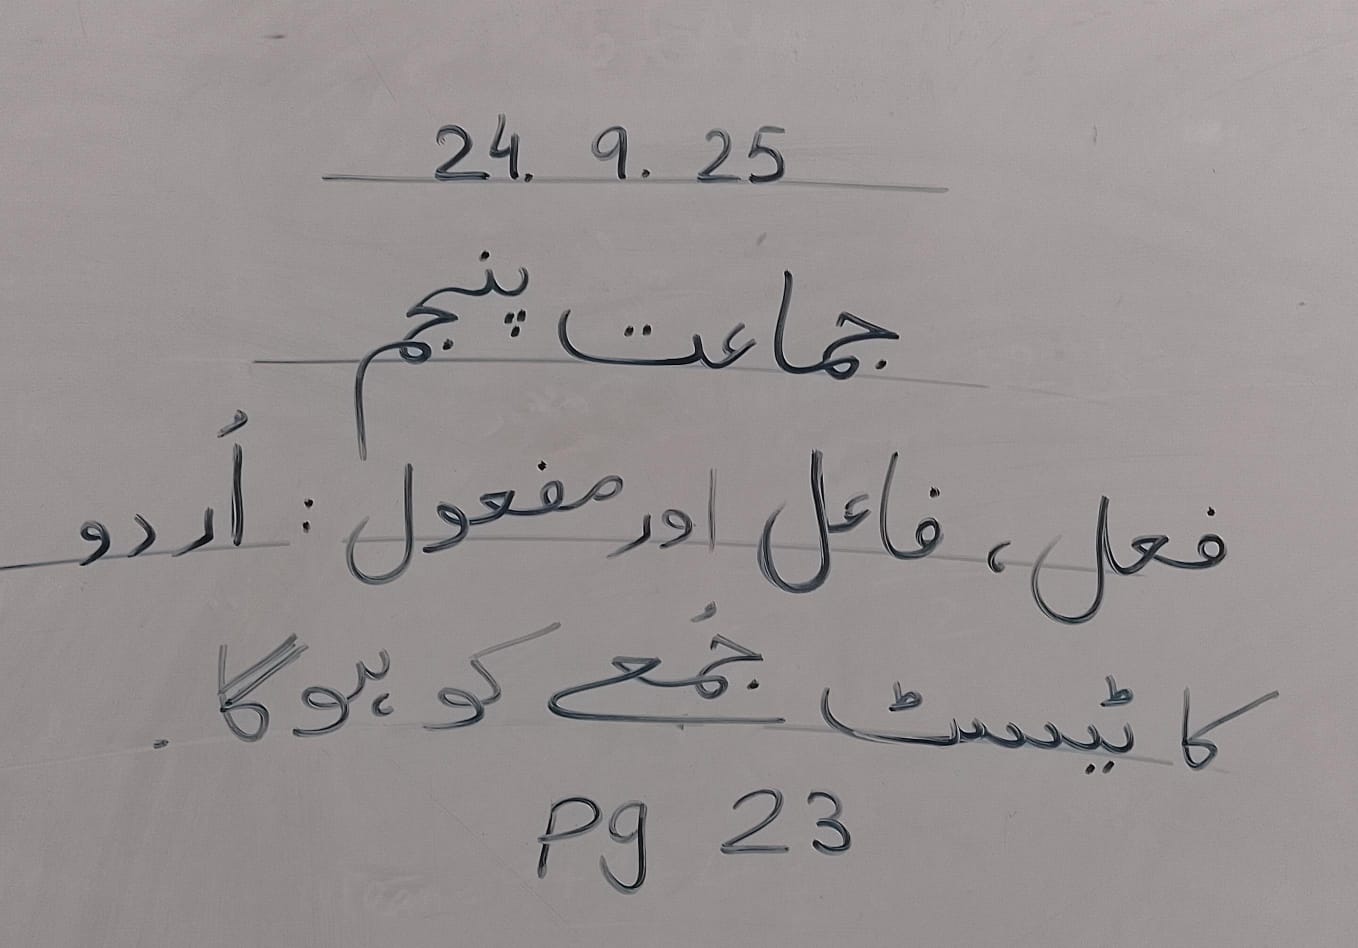 24. 9. 25
جماعت پنجم
فعل، فاعل اور مفعول : اُردو
کا ٹیسٹ جُمعے کو ہوگا.
Pg 23